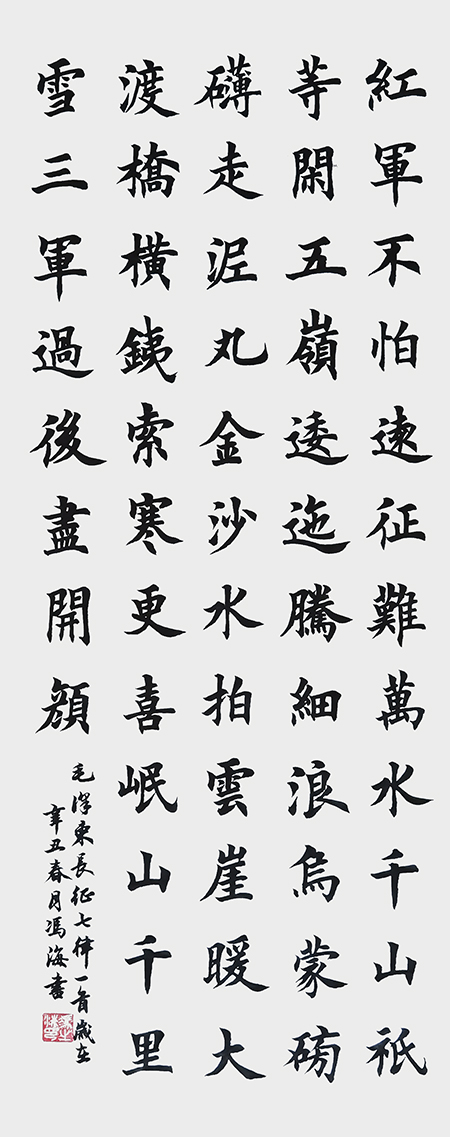 紅軍不怕遠征難萬水千山祇
等閑五嶺逶迤騰細浪烏蒙磅
礴走泥丸金沙水拍雲崖暖大
渡橋橫銕索寒更喜岷山千里
雪三軍過後盡開顏
毛澤東長征七律一首歲在
辛丑春月馮海書